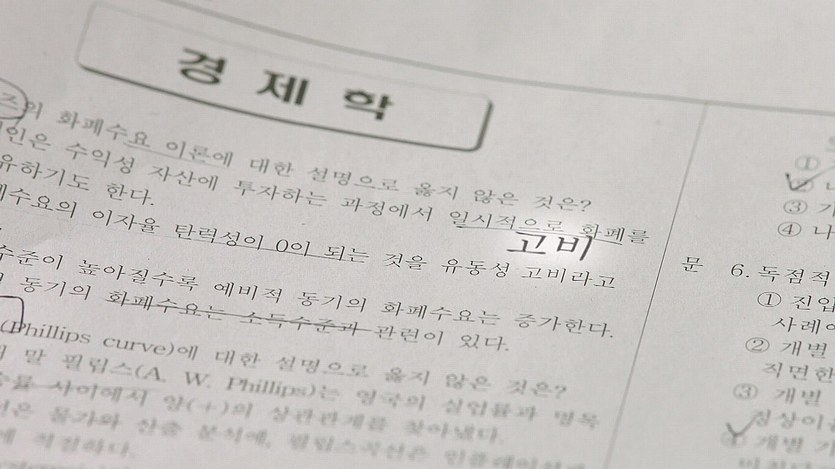 경제학
의 화폐수요 이론에 대한 설명으로 옳지 않은 것은?
인은 수익성 자산에 투자하는 과정에서 일시적으로 화폐를
유하기도 한다.
수요의 이자율 탄력성이 0이 되는 것을 유동성 고비라고
고비
수준이 높아질수록 예비적 동기의 화폐수요는 증가한다.
동기의 화폐수요는 소득수준과 관련이 있다.
(Phillips curve)에 대한 설명으로 옳지 않은 것은?
말 필립스(A. W. Phillips)는 영국의 실업률과 명목
사이에서 양(+)의 상관관계를 찾아냈다.
물가와 산출 분석에, 필립스곡선은
에 적절하다.
①
② 나
③ 기
④ 나
문 6. 독점적
① 진입
사례이
② 개별
직면한
③ 개별
정상이윤
④ 개별 기